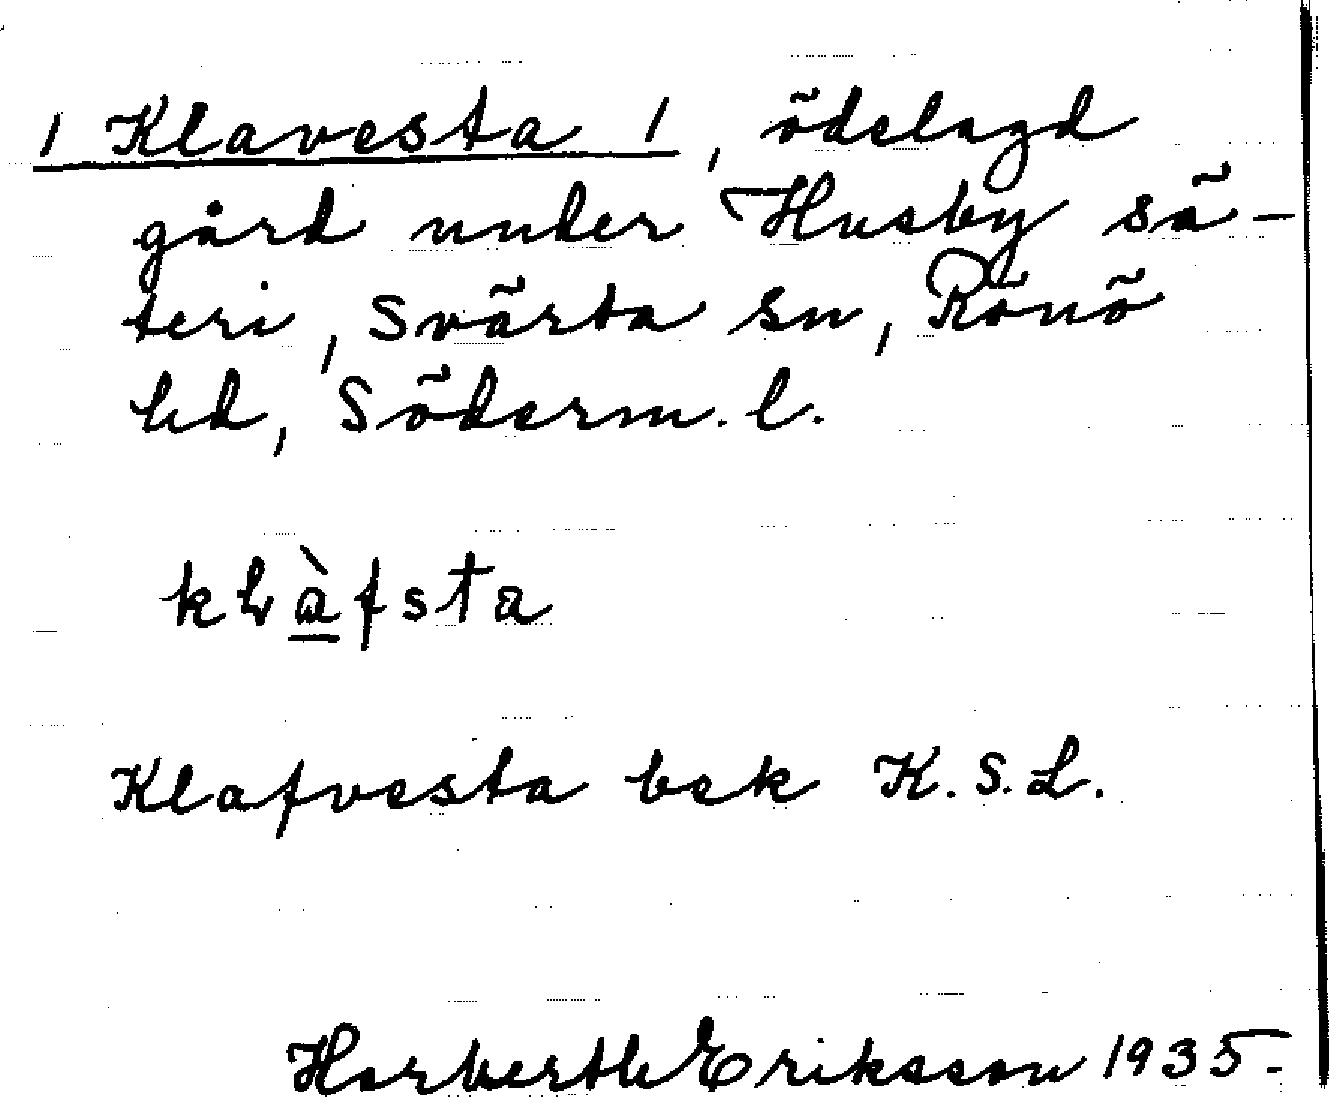 / Klavesta /, ödelagd
gård under Husby sä-
teri, Svärta sn, Rönö
hd, Söderm. l.
klàfsta
Klafvesta bek K.S.L.
Herberth Eriksson 1935.